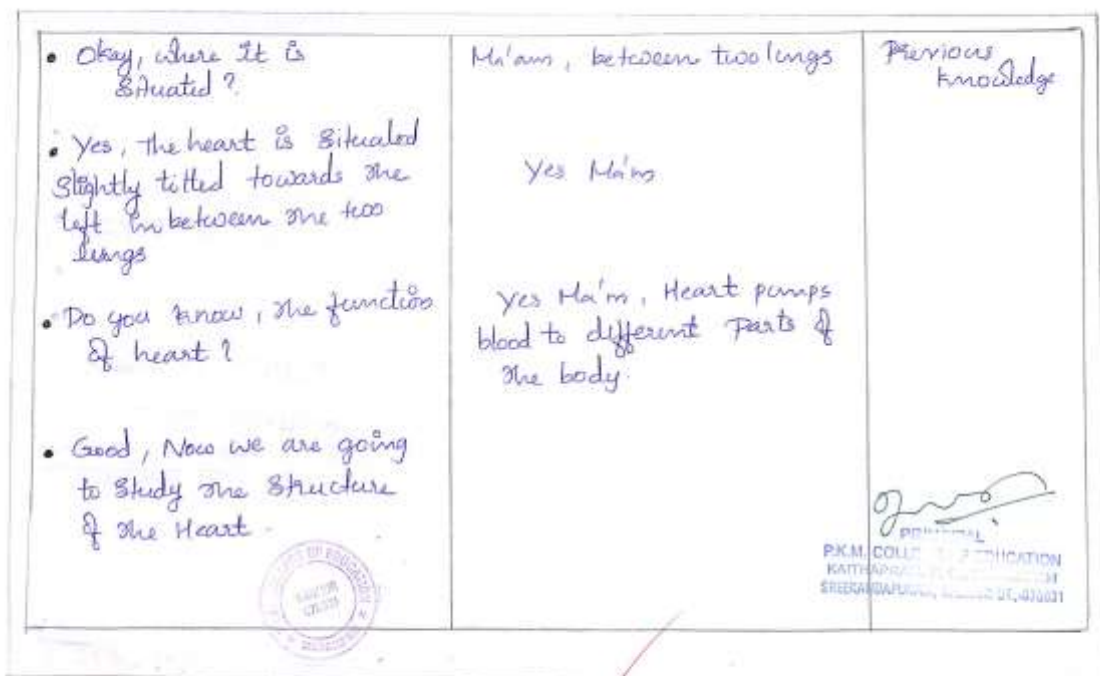 • Okay, where It is
Situated ?
• Yes, the heart is Situated
Slightly tilted towards the
left in between the two
lungs
• Do you know, the function
of heart ?
• Good, Now we are going
to Study the Structure
of the Heart.
Ma'am, between two lungs
Yes Ma'm
Yes Ma'm, Heart pumps
blood to different Parts of
the body.
Previous
knowledge
PRINCIPAL
P.K.M. COLLEGE OF EDUCATION
OF EDUCATION